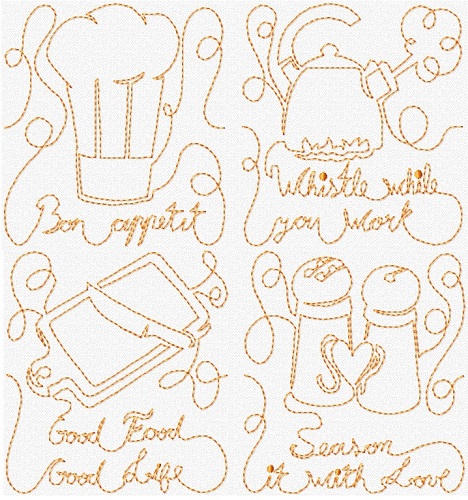 Bon appetit
Whistle while
you work
Good Food
Good Life
Season
it with Love